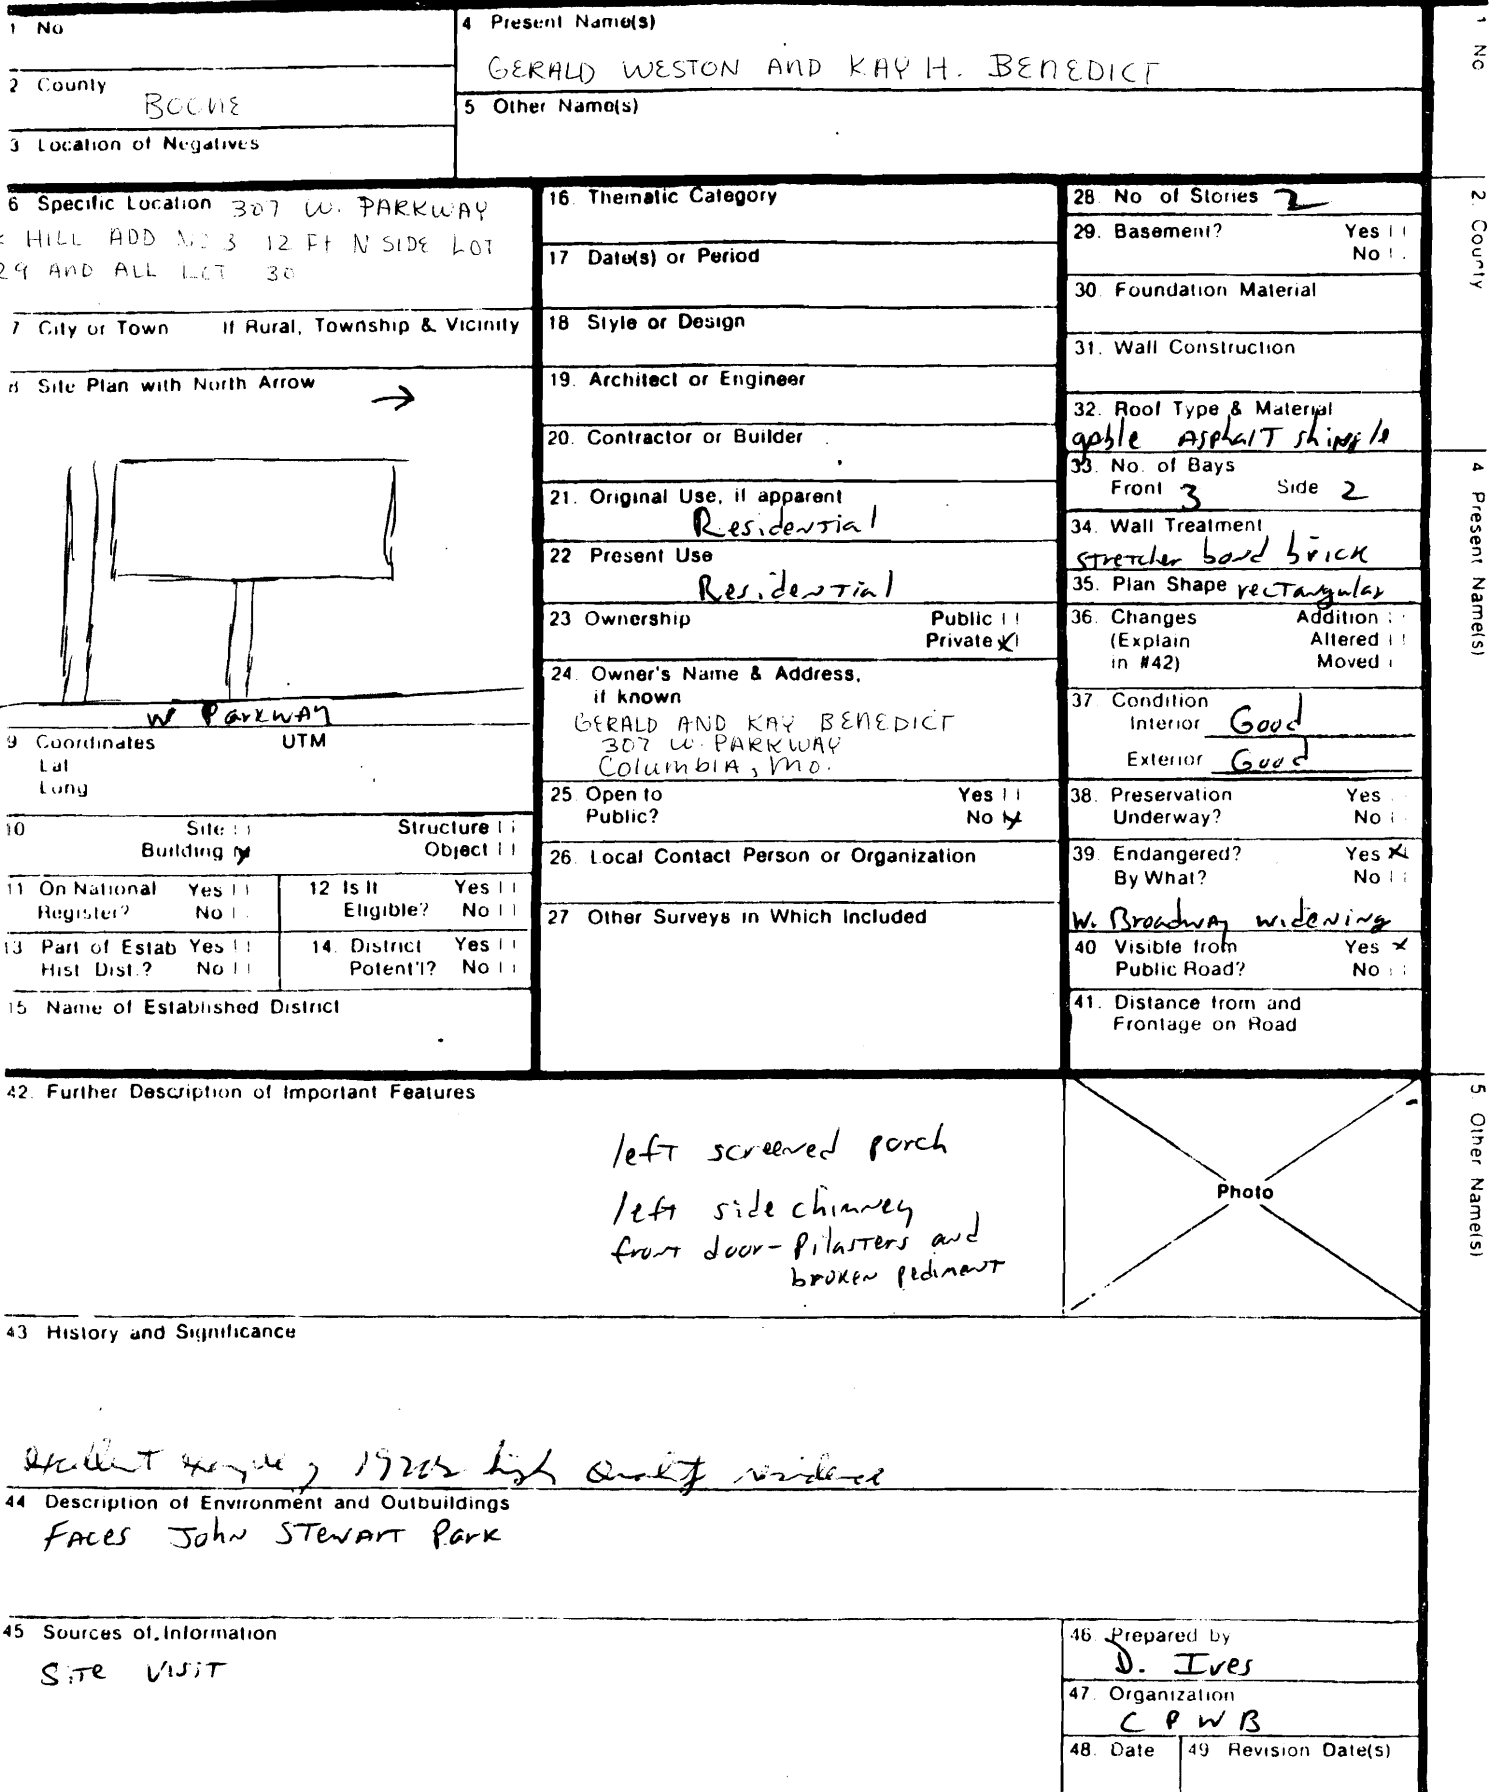 1 No
4 Present Name(s)
GERALD WESTON AND KAY H. BENEDICT
2 County
BOONE
5 Other Name(s)
3 Location of Negatives
6 Specific Location 307 W. PARKWAY
HILL ADD NO 3 12 Ft N SIDE LOT
29 AND ALL LOT 30
7 City or Town If Rural, Township & Vicinity
8 Site Plan with North Arrow
W Parkway
9 Coordinates UTM
Lat
Long
10 Site Structure
Building Object
11 On National Register? Yes No
12 Is It Eligible? Yes No
13 Part of Estab Hist Dist.? Yes No
14. District Potent'l? Yes No
15 Name of Established District
16. Thematic Category
17 Date(s) or Period
18 Style or Design
19. Architect or Engineer
20. Contractor or Builder
21. Original Use, if apparent
Residential
22 Present Use
Residential
23 Ownership Public
Private X
24. Owner's Name & Address,
if known
GERALD AND KAY BENEDICT
307 W. PARKWAY
Columbia, Mo.
25. Open to Yes
Public? No X
26. Local Contact Person or Organization
27 Other Surveys in Which Included
28. No of Stories 2
29. Basement? Yes
No
30. Foundation Material
31. Wall Construction
32. Roof Type & Material
gable Asphalt shingle
33. No. of Bays
Front 3 Side 2
34. Wall Treatment
stretcher bond brick
35. Plan Shape rectangular
36. Changes Addition
(Explain Altered
in #42) Moved
37. Condition
Interior Good
Exterior Good
38. Preservation Yes
Underway? No
39. Endangered? Yes X
By What? No
W. Broadway widening
40 Visible from Yes X
Public Road? No
41. Distance from and
Frontage on Road
42. Further Description of Important Features
left screened porch
left side chimney
front door - Pilasters and
broken pediment
Photo
43 History and Significance
excellent example of 1920s high quality residence
44 Description of Environment and Outbuildings
Faces John Stewart Park
45 Sources of Information
Site Visit
46. Prepared by
D. Ives
47. Organization
C P W B
48. Date
49 Revision Date(s)
1 No
2. County
4 Present Name(s)
5. Other Name(s)